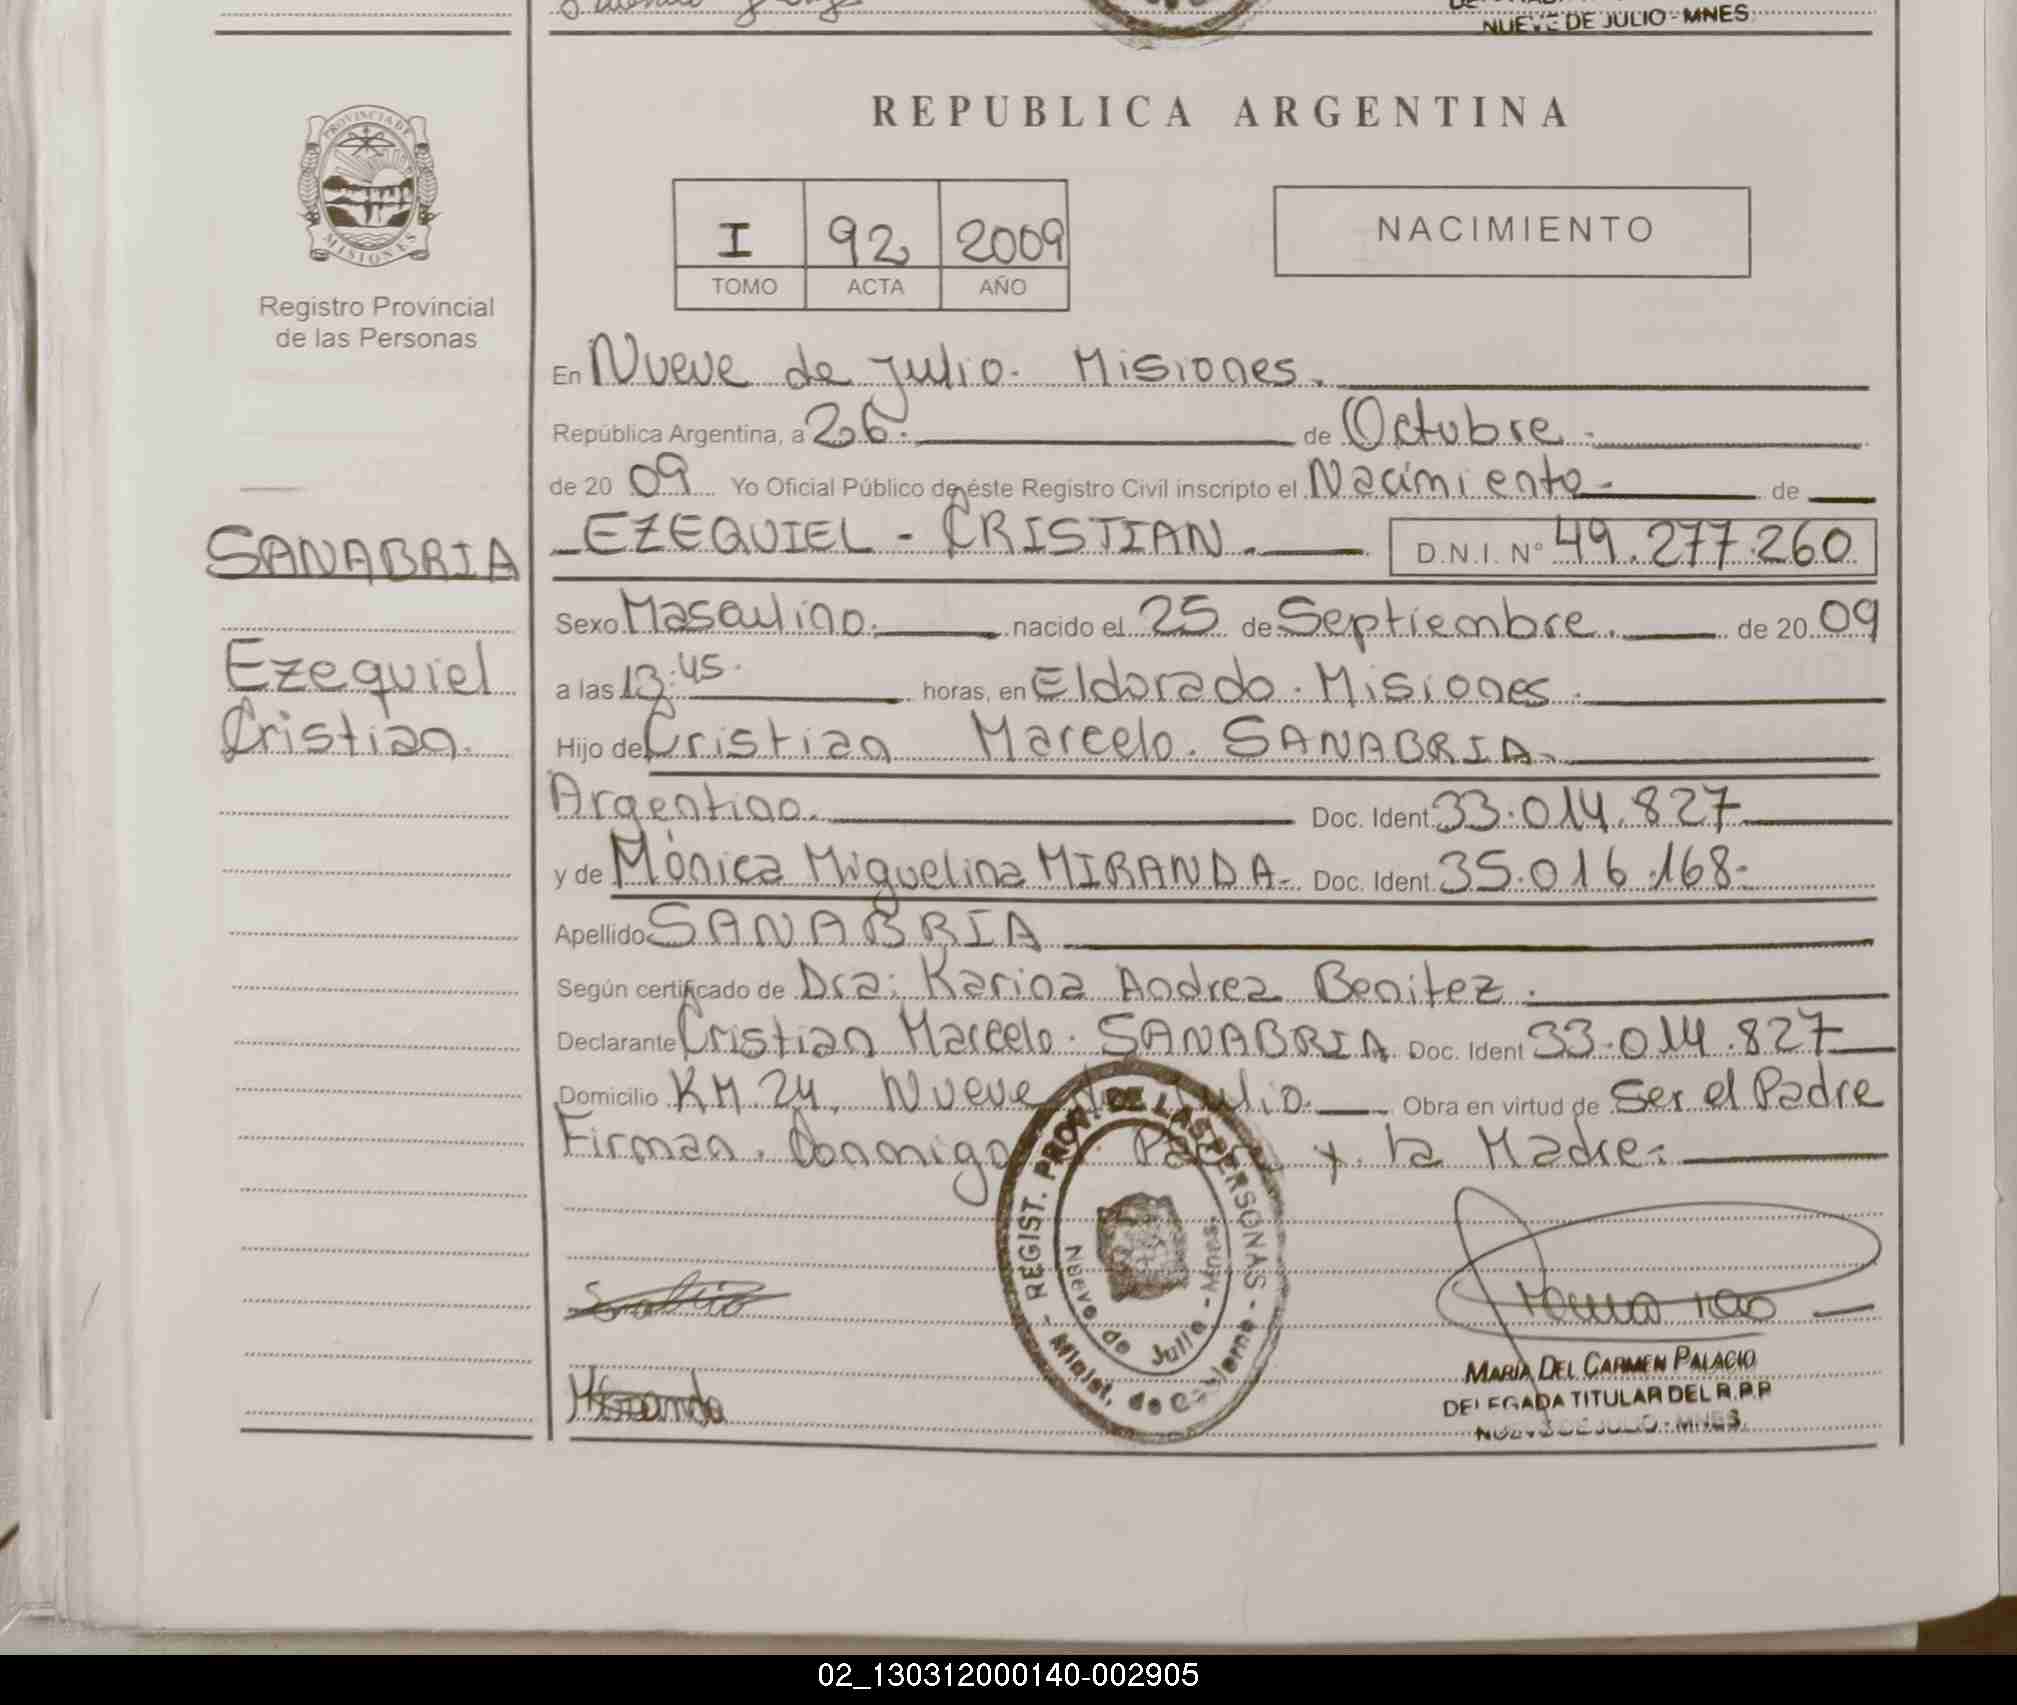 NUEVE DE JULIO - MNES
REPUBLICA ARGENTINA
PROVINCIA DE
MISIONES
Registro Provincial
de las Personas
I 92 2009
TOMO ACTA AÑO
NACIMIENTO
En Nueve de Julio. Misiones.
República Argentina, a 26. de Octubre.
de 20 09 Yo Oficial Público de éste Registro Civil inscripto el Nacimiento- de
EZEQUIEL - CRISTIAN. D.N.I. Nº 49.277.260
SANABRIA
Ezequiel
Cristian.
Sexo Masculino. nacido el 25 de Septiembre. de 20 09
a las 13:45. horas, en Eldorado. Misiones.
Hijo de Cristian Marcelo. SANABRIA.
Argentino. Doc. Ident 33.014.827
y de Mónica Miguelina MIRANDA- Doc. Ident 35.016.168-
Apellido SANABRIA
Según certificado de Dra: Karina Andrea Benitez.
Declarante Cristian Marcelo. SANABRIA Doc. Ident 33.014.827
Domicilio KM 24, Nueve de Julio. Obra en virtud de Ser el Padre
Firman. Conmigo Padre y la Madre:
REGIST. PROV. DE LAS PERSONAS - Minist. de Gobierno -
Nueve de Julio - Mnes.
Miranda
MARIA DEL CARMEN PALACIO
DELEGADA TITULAR DEL R.P.P
NUEVE DE JULIO - MNES.
02_130312000140-002905